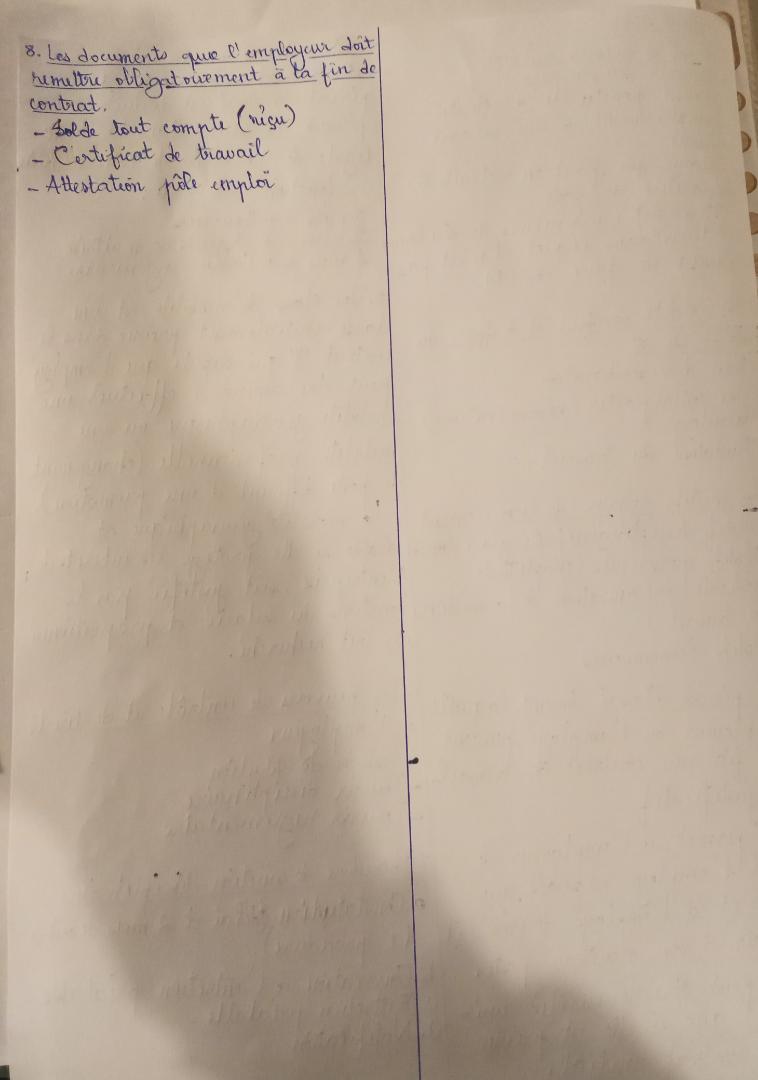 8. Les documents que l'employeur doit
remettre obligatoirement à la fin de
contrat.
- Solde tout compte (reçu)
- Certificat de travail
- Attestation pôle emploi